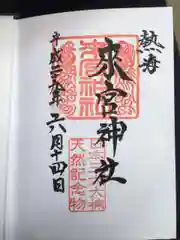 熱海
來宮神社
平成二十九年六月十四日
來宮神社
天然記念物